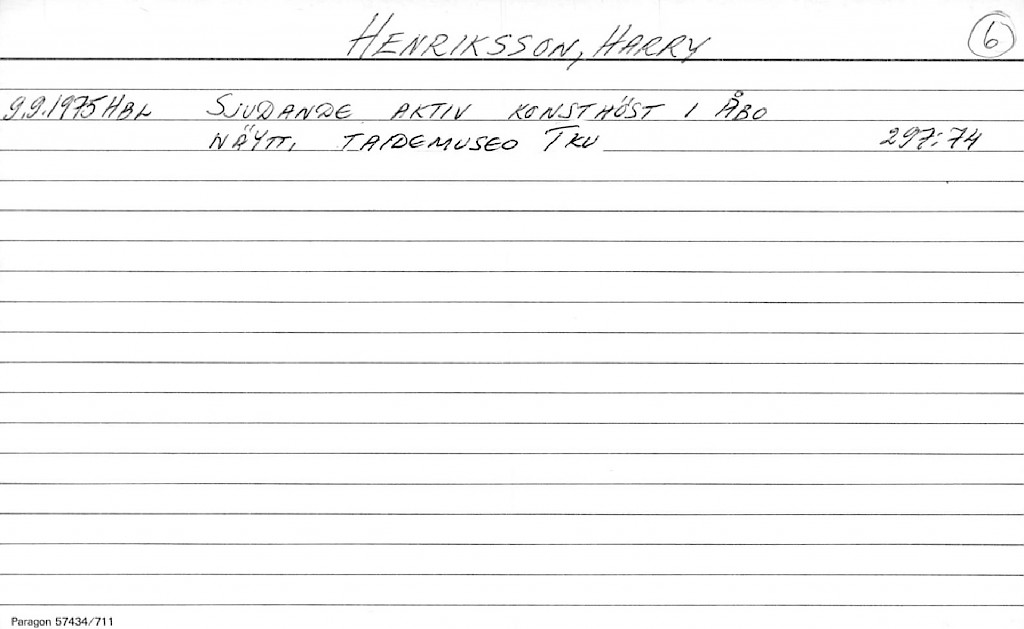 HENRIKSSON, HARRY 6
9.9.1975 HBL SJUDANDE AKTIV KONSTHÖST I ÅBO
NÄYTT. TAIDEMUSEO TKU 297:74
Paragon 57434/711